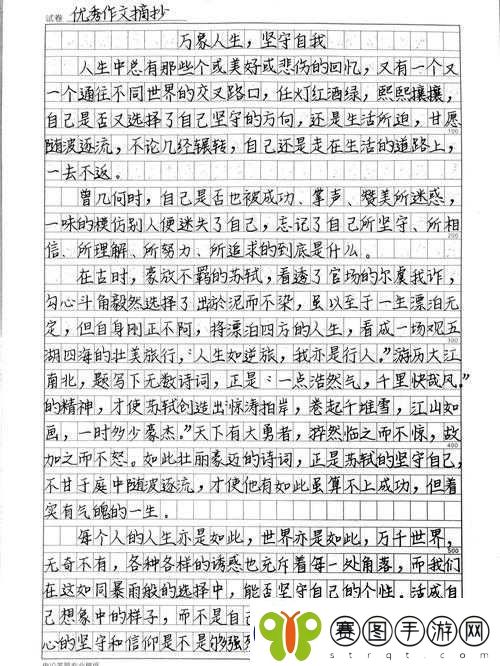 试卷 优秀作文摘抄
万象人生，坚守自我
人生中总有那些个或美好或悲伤的回忆，又有一个又
一个通往不同世界的交叉路口，任灯红酒绿，熙熙攘攘，
自己是否又选择了自己坚守的方向，还是生活所迫，甘愿
随波逐流，不论几经辗转，自己还是走在生活的道路上，
100
一去不返。
曾几何时，自己是否也被成功、掌声、赞美所迷惑，
一味的模仿别人便迷失了自己，忘记了自己所坚守、所相
200
信、所理解、所努力、所追求的到底是什么。
在古时，豪放不羁的苏轼，看透了官场的尔虞我诈，
勾心斗角毅然选择了出於泥而不染，虽以至于一生漂泊无
定，但自身刚正不阿，将漂泊四方的人生，看成一场观五
300
湖四海的壮美旅行，“人生如逆旅，我亦是行人。”游历大江
南北，题写下无数诗词，正是“一点浩然气，千里快哉风。”
的精神，才使苏轼创造出“惊涛拍岸，卷起千堆雪，江山如
画，一时多少豪杰。”天下有大勇者，猝然临之而不惊，故
400
加之而不怒。如此壮丽豪迈的诗词，正是苏轼的坚守自己，
不甘于庭中随波逐流，才使他有如此虽算不上成功，但着
实有气魄的一生。
每个人的人生亦是如此，世界亦是如此，万千世界，
500
无奇不有，各种各样的诱惑也充斥着每一处角落，而我们
在这如同暴雨般的选择中，能否坚守自己的个性。活成自
己想象中的样子，而不是自己
心的坚守和信仰是不是够强烈
赛图手游网